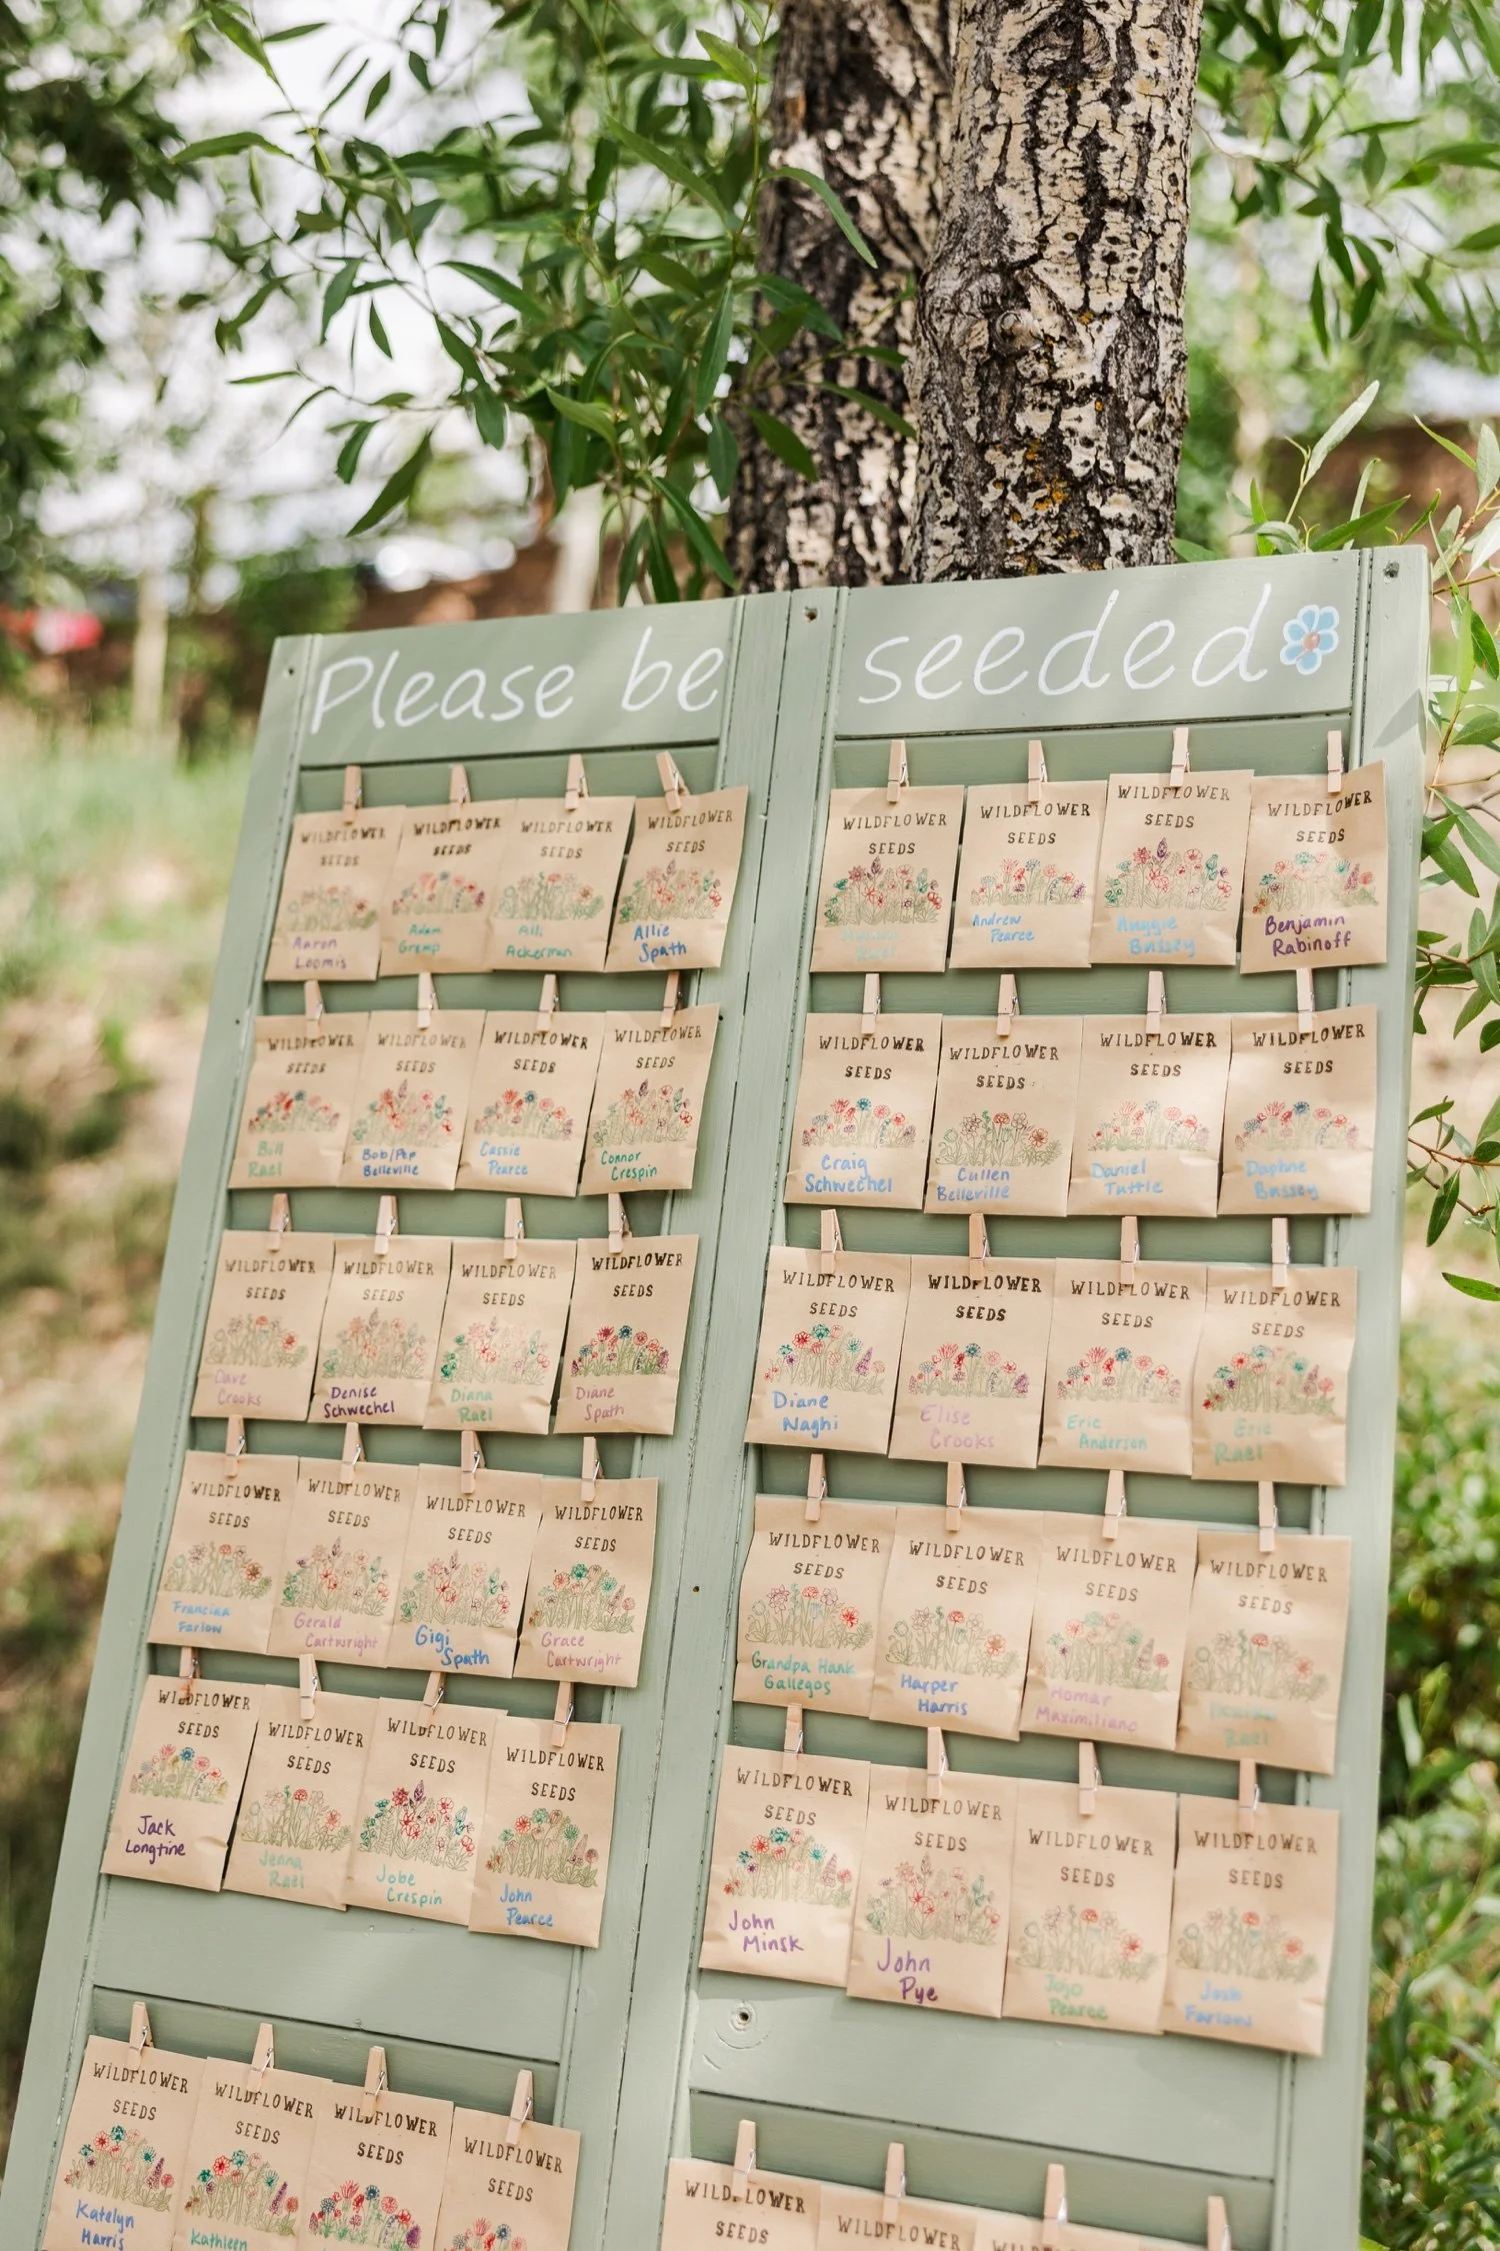 Please be seeded
WILDFLOWER
SEEDS
Aaron
Loomis
WILDFLOWER
SEEDS
Adam
Gremp
WILDFLOWER
SEEDS
Ali
Ackerman
WILDFLOWER
SEEDS
Allie
Spath
WILDFLOWER
SEEDS
Rael
WILDFLOWER
SEEDS
Andrew
Pearce
WILDFLOWER
SEEDS
Auggie
Bussey
WILDFLOWER
SEEDS
Benjamin
Rabinoff
WILDFLOWER
SEEDS
Bill
Rael
WILDFLOWER
SEEDS
Bob/Pop
Belleville
WILDFLOWER
SEEDS
Cassie
Pearce
WILDFLOWER
SEEDS
Connor
Crespin
WILDFLOWER
SEEDS
Craig
Schwechel
WILDFLOWER
SEEDS
Cullen
Belleville
WILDFLOWER
SEEDS
Daniel
Tuttle
WILDFLOWER
SEEDS
Daphne
Bussey
WILDFLOWER
SEEDS
Dave
Crooks
WILDFLOWER
SEEDS
Denise
Schwechel
WILDFLOWER
SEEDS
Diana
Rael
WILDFLOWER
SEEDS
Diane
Spath
WILDFLOWER
SEEDS
Diane
Naghi
WILDFLOWER
SEEDS
Elise
Crooks
WILDFLOWER
SEEDS
Eric
Anderson
WILDFLOWER
SEEDS
Eric
Rael
WILDFLOWER
SEEDS
Farlow
WILDFLOWER
SEEDS
Gerald
Cartwright
WILDFLOWER
SEEDS
Gigi
Spath
WILDFLOWER
SEEDS
Grace
Cartwright
WILDFLOWER
SEEDS
Grandpa Hank
Gallegos
WILDFLOWER
SEEDS
Harper
Harris
WILDFLOWER
SEEDS
Homar
Maximiliano
WILDFLOWER
SEEDS
Rael
WILDFLOWER
SEEDS
Jack
Longtine
WILDFLOWER
SEEDS
Jenna
Rael
WILDFLOWER
SEEDS
Jobe
Crespin
WILDFLOWER
SEEDS
John
Pearce
WILDFLOWER
SEEDS
John
Minsk
WILDFLOWER
SEEDS
John
Pye
WILDFLOWER
SEEDS
Jojo
Pearce
WILDFLOWER
SEEDS
Josh
Farlow
WILDFLOWER
SEEDS
Katelyn
Harris
WILDFLOWER
SEEDS
Kathleen
WILDFLOWER
SEEDS
WILDFLOWER
SEEDS
WILDFLOWER
SEEDS
WILDFLOWER